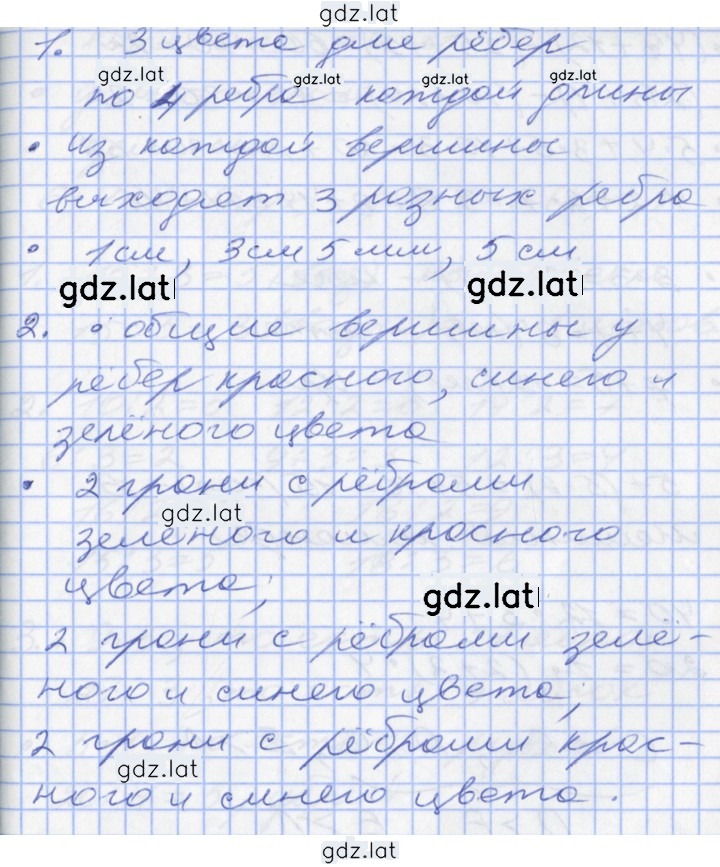 gdz.lat
1. 3 цвета для рёбер
gdz.lat gdz.lat gdz.lat gdz.lat
по 4 ребра каждой длины
• Из каждой вершины
выходят 3 разных ребра
• 1 см, 3 см 5 мм, 5 см
gdz.lat gdz.lat
2. • общие вершины у
рёбер красного, синего и
зелёного цвета
• 2 грани с рёбрами
gdz.lat
зеленого и красного
цвета;
gdz.lat
2 грани с рёбрами зелё-
ного и синего цвета;
2 грани с рёбрами крас-
gdz.lat
ного и синего цвета.
gdz.lat